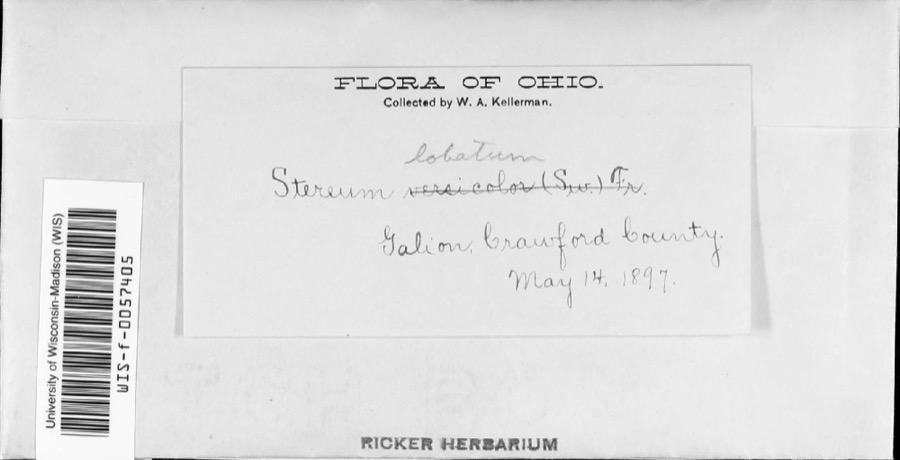 FLORA OF OHIO.
Collected by W. A. Kellerman.
lobatum
Stereum versicolor (Sw.) Fr.
Galion, Crawford County.
May 14, 1897.
University of Wisconsin-Madison (WIS)
WIS-f-0057405
RICKER HERBARIUM